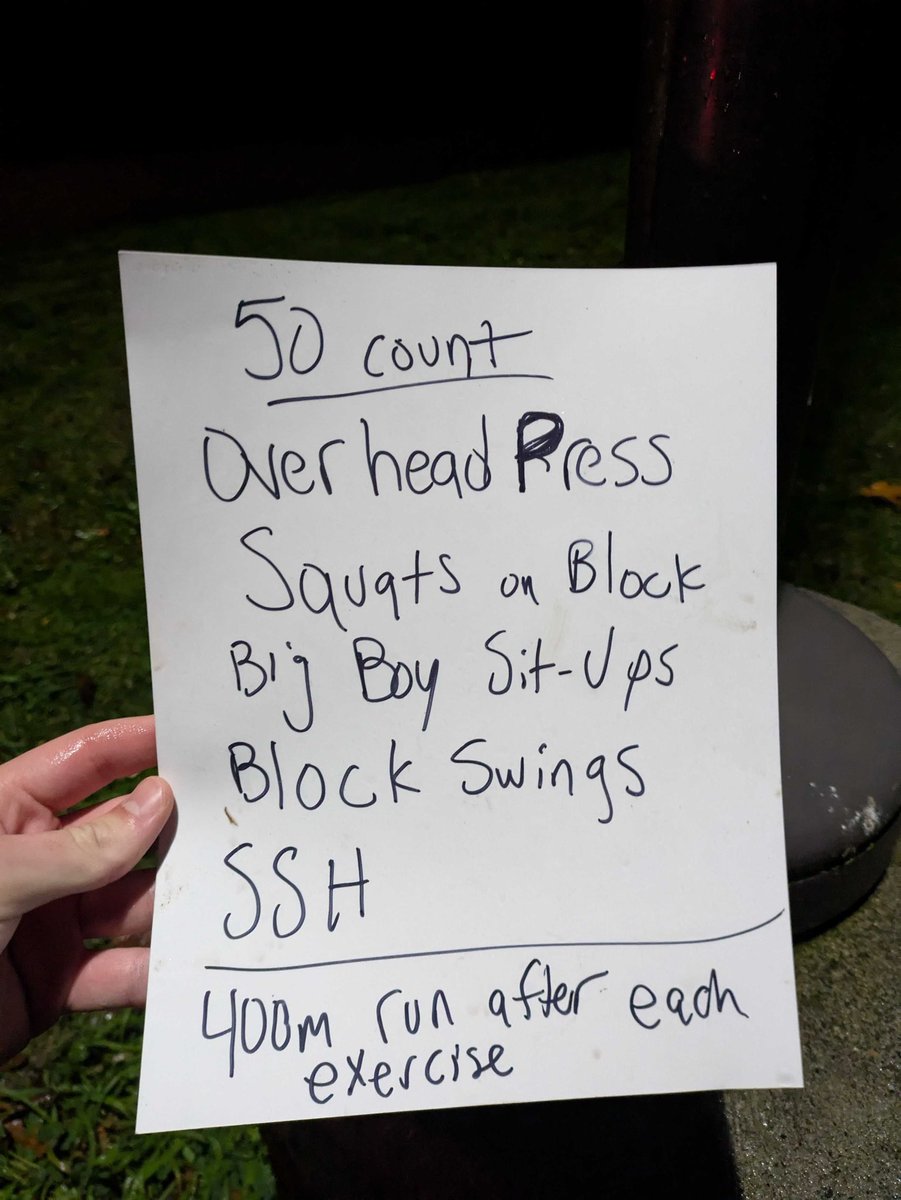 50 count
Overhead Press
Squats on Block
Big Boy Sit-Ups
Block Swings
SSH
400m run after each
exercise